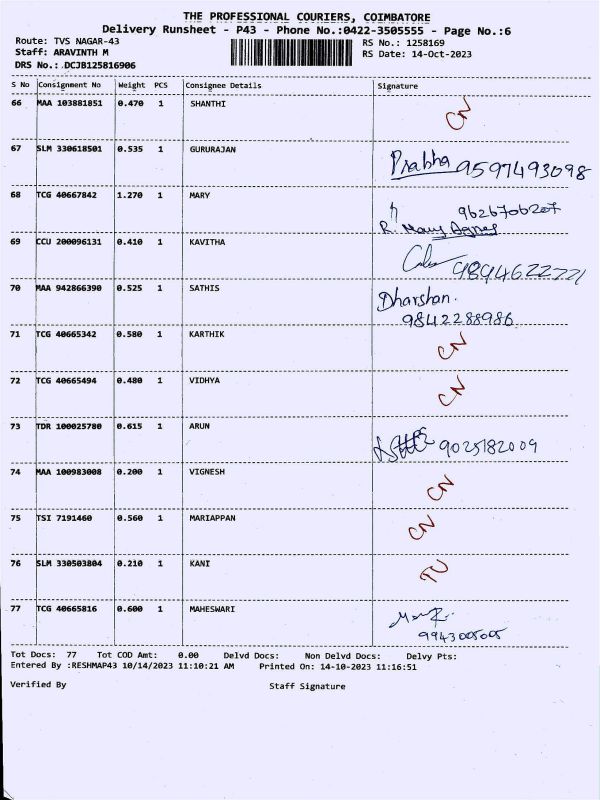 THE PROFESSIONAL COURIERS, COIMBATORE
Delivery Runsheet - P43 - Phone No.:0422-3505555 - Page No.:6
Route: TVS NAGAR-43 RS No.: 1258169
Staff: ARAVINTH M RS Date: 14-Oct-2023
DRS No.: DCJB125816906
S No Consignment No Weight PCS Consignee Details Signature
66 MAA 103881851 0.470 1 SHANTHI CN
67 SLM 330618501 0.535 1 GURURAJAN Prabha 9597493098
68 TCG 40667842 1.270 1 MARY 9626706207
R. Mary Agnes
69 CCU 200096131 0.410 1 KAVITHA 9894622721
70 MAA 942866390 0.525 1 SATHIS Dharshan.
9842288986
71 TCG 40665342 0.580 1 KARTHIK CN
72 TCG 40665494 0.480 1 VIDHYA CN
73 TDR 100025780 0.615 1 ARUN 9025182009
74 MAA 100983008 0.200 1 VIGNESH CN
75 TSI 7191460 0.560 1 MARIAPPAN CN
76 SLM 330503804 0.210 1 KANI
77 TCG 40665816 0.600 1 MAHESWARI
9943005005
Tot Docs: 77 Tot COD Amt: 0.00 Delvd Docs: Non Delvd Docs: Delvy Pts:
Entered By :RESHMAP43 10/14/2023 11:10:21 AM Printed On: 14-10-2023 11:16:51
Verified By Staff Signature